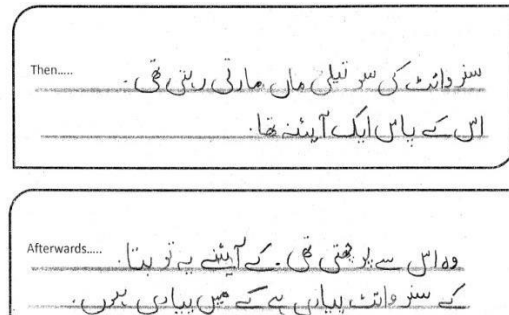 Then.....
سنو وائٹ کی سو تیلی ماں مارتی رہتی تھی۔
اس کے پاس ایک آیئنہ تھا۔
Afterwards.....
وہ اس سے پو چھتی تھی۔ کے آیئنے یہ تو بتا۔
کے سنو وائٹ پیاری ہے کے میں پیاری ہوں۔